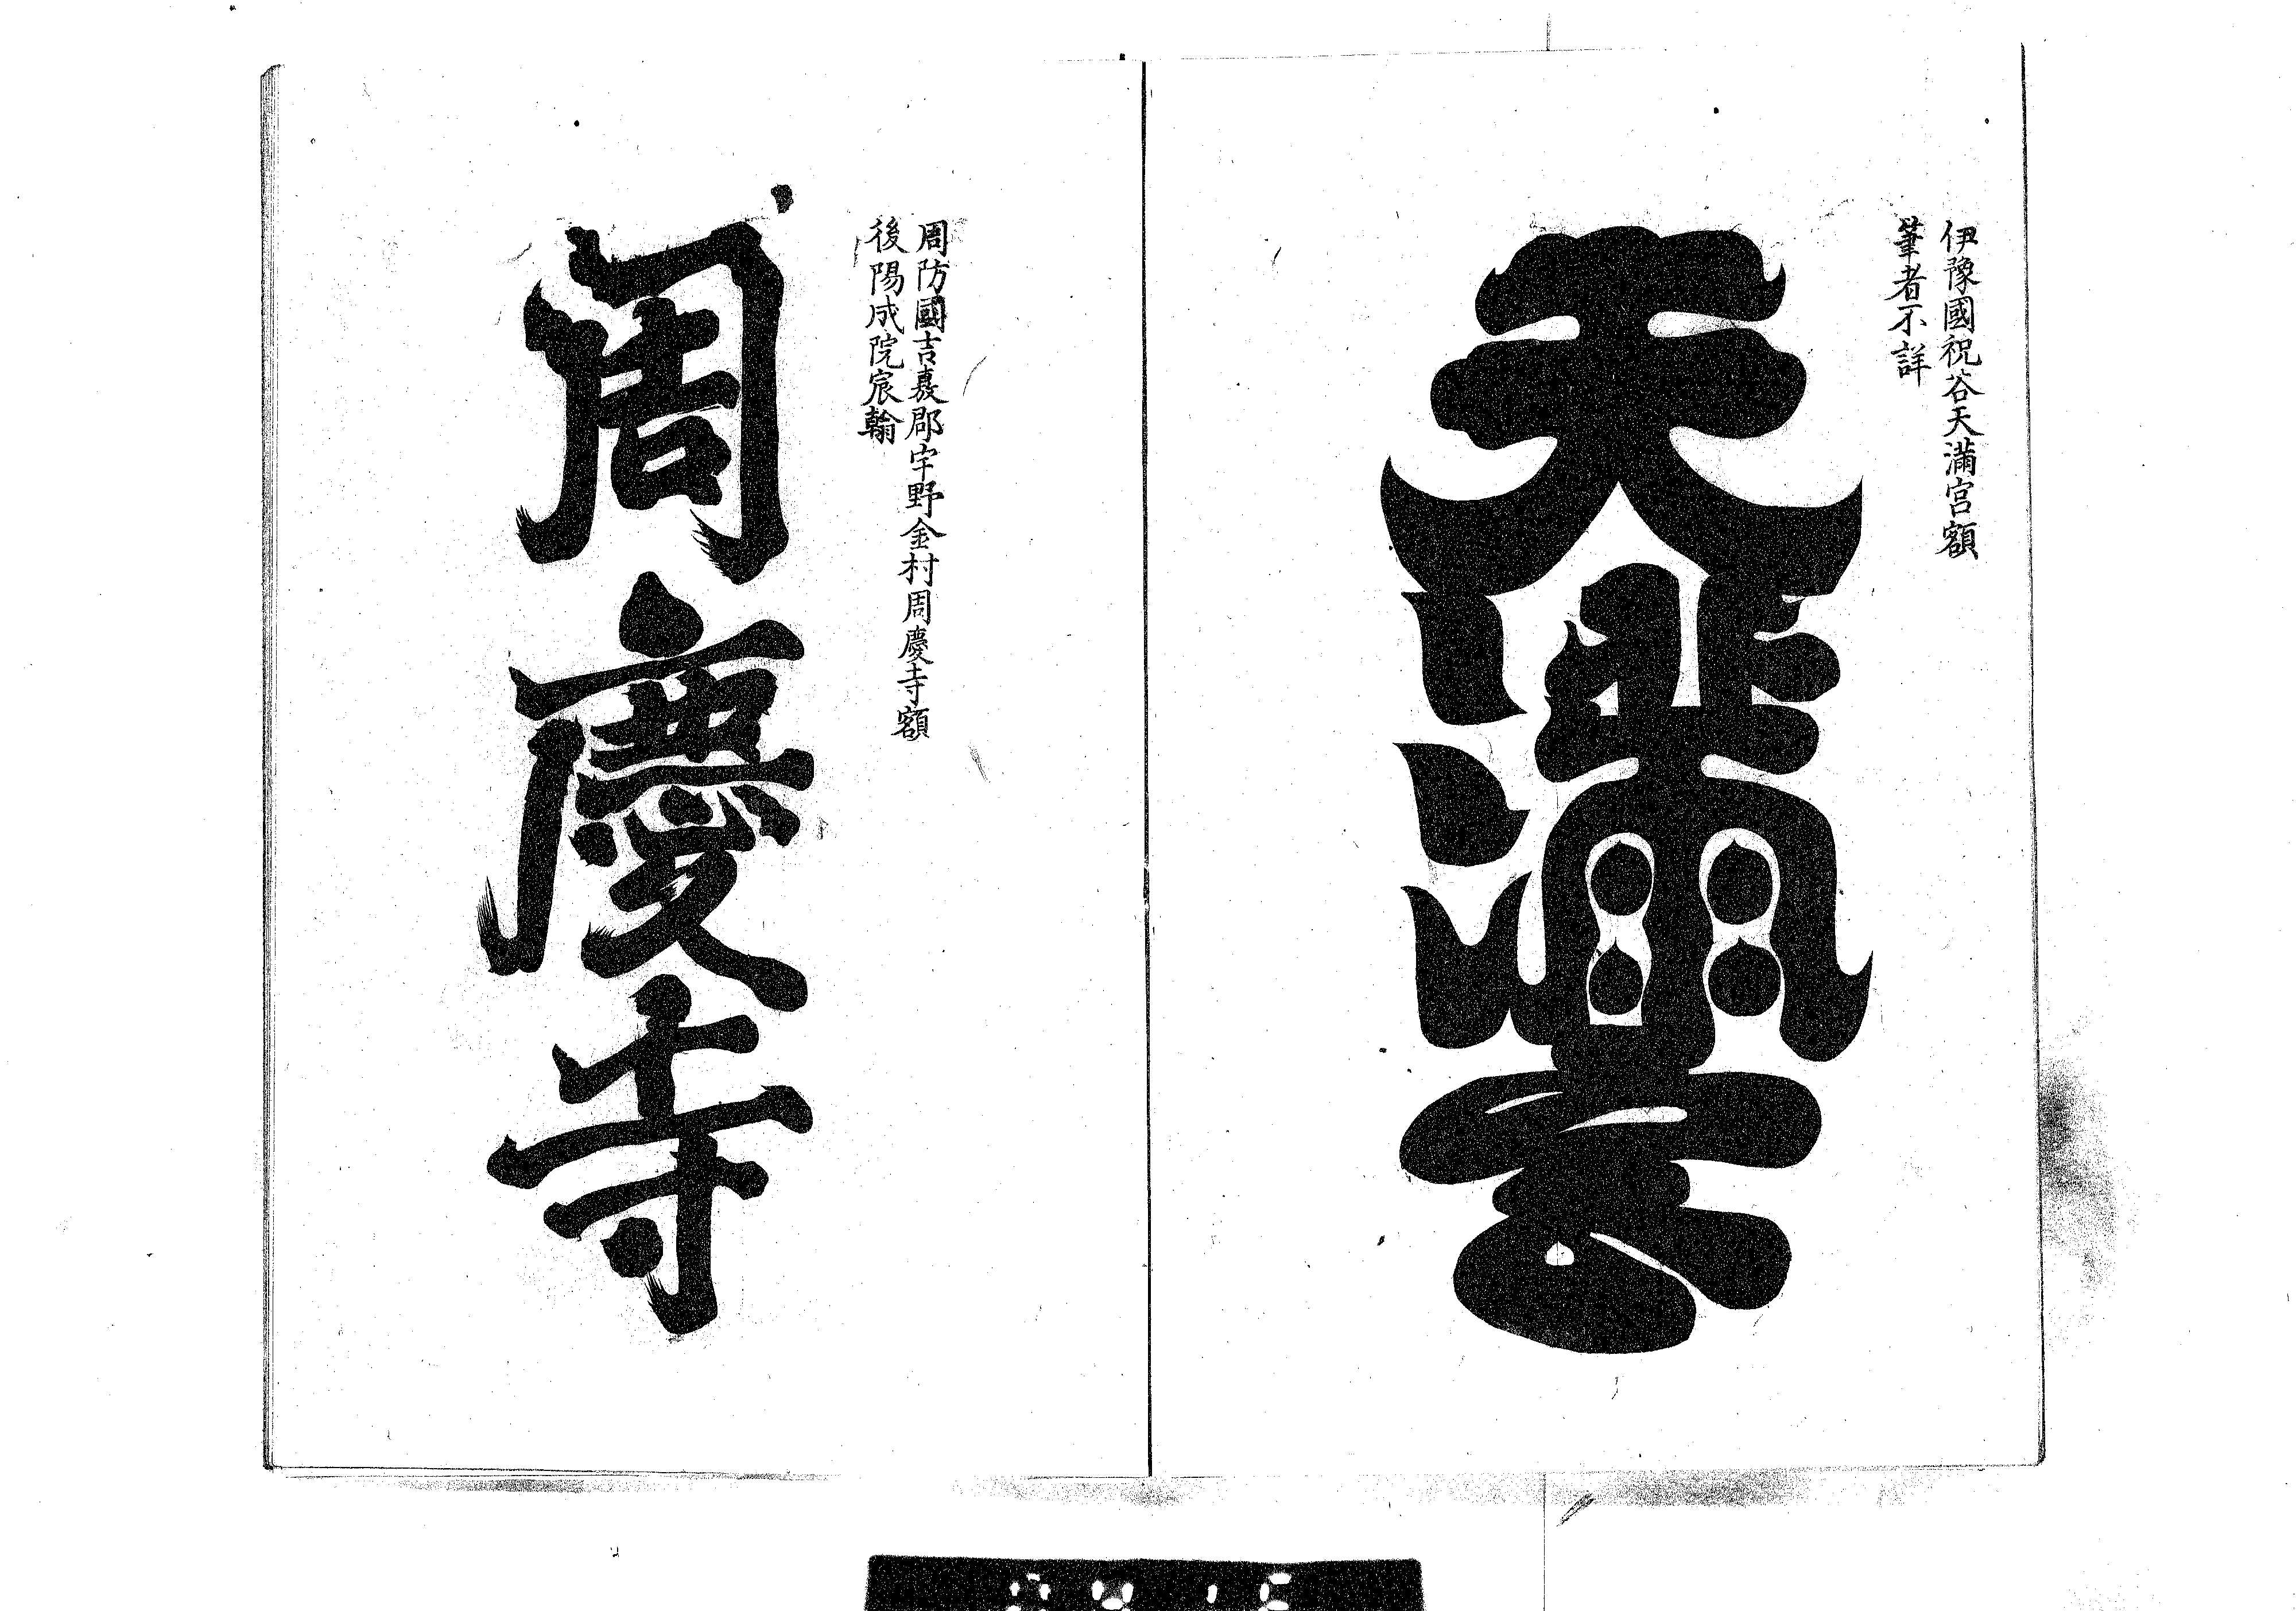 伊豫國祝谷天滿宮額
筆者不詳
天滿宮
周防國吉敷郡宇野令村周慶寺額
後陽成院宸翰
周慶寺